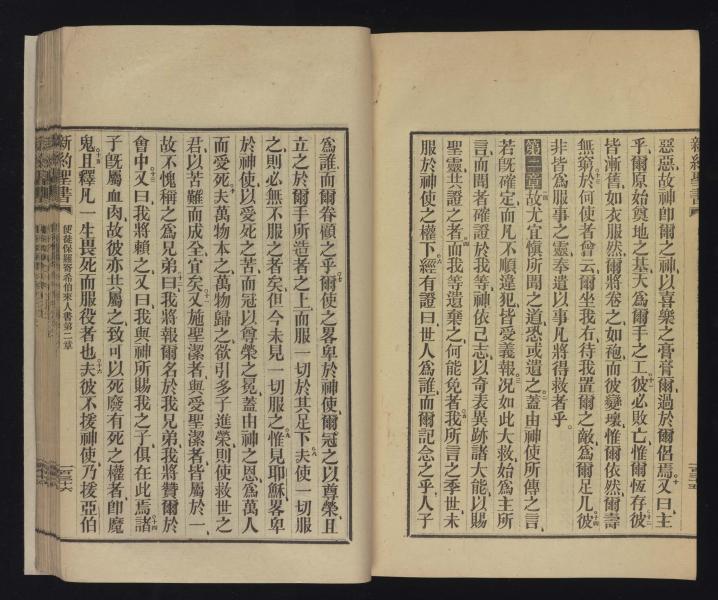 惡惡故神卽爾之神以喜樂之膏膏爾過於爾侶焉又曰主
乎爾原始奠地之基天爲爾手之工彼必敗亡惟爾恆存彼
皆漸舊如衣服然爾將卷之如袍而彼變壞惟爾依然爾壽
無窮於何使者曾云爾坐我右待我置爾之敵爲爾足几彼
非皆爲服事之靈奉遣以事凡將得救者乎
第二章故尤宜愼所聞之道恐或遺之蓋由神使所傳之言
若旣確定而凡不順違犯皆受義報况如此大救始爲主所
言而聞者確證於我等神依己志以奇表異跡諸大能以賜
聖靈共證之者而我等遺棄之何能免者我所言之季世未
服於神使之權下經有證曰世人爲誰而爾記念之乎人子
爲誰而爾眷顧之乎爾使之畧卑於神使爾冠之以尊榮且
立之於爾手所造者之上而服一切於其足下夫使一切服
之則必無不服之者矣但今未見一切服之惟見耶穌畧卑
於神使以愛死之苦而冠以尊榮之冕蓋由神之恩爲萬人
而愛死夫萬物本之萬物歸之欲引多子進榮則使救世之
君以苦難而成全宜矣又施聖潔者與愛聖潔者皆屬於一
故不愧稱之爲兄弟曰我將報爾名於我兄弟我將贊爾於
會中又曰我將賴之又曰我與神所賜我之子俱在此焉諸
子旣屬血肉故彼亦共屬之致可以死廢有死之權者卽魔
鬼且釋凡一生畏死而服役者也夫彼不援神使乃援亞伯
新約聖書
使徒保羅寄希伯來人書第二章